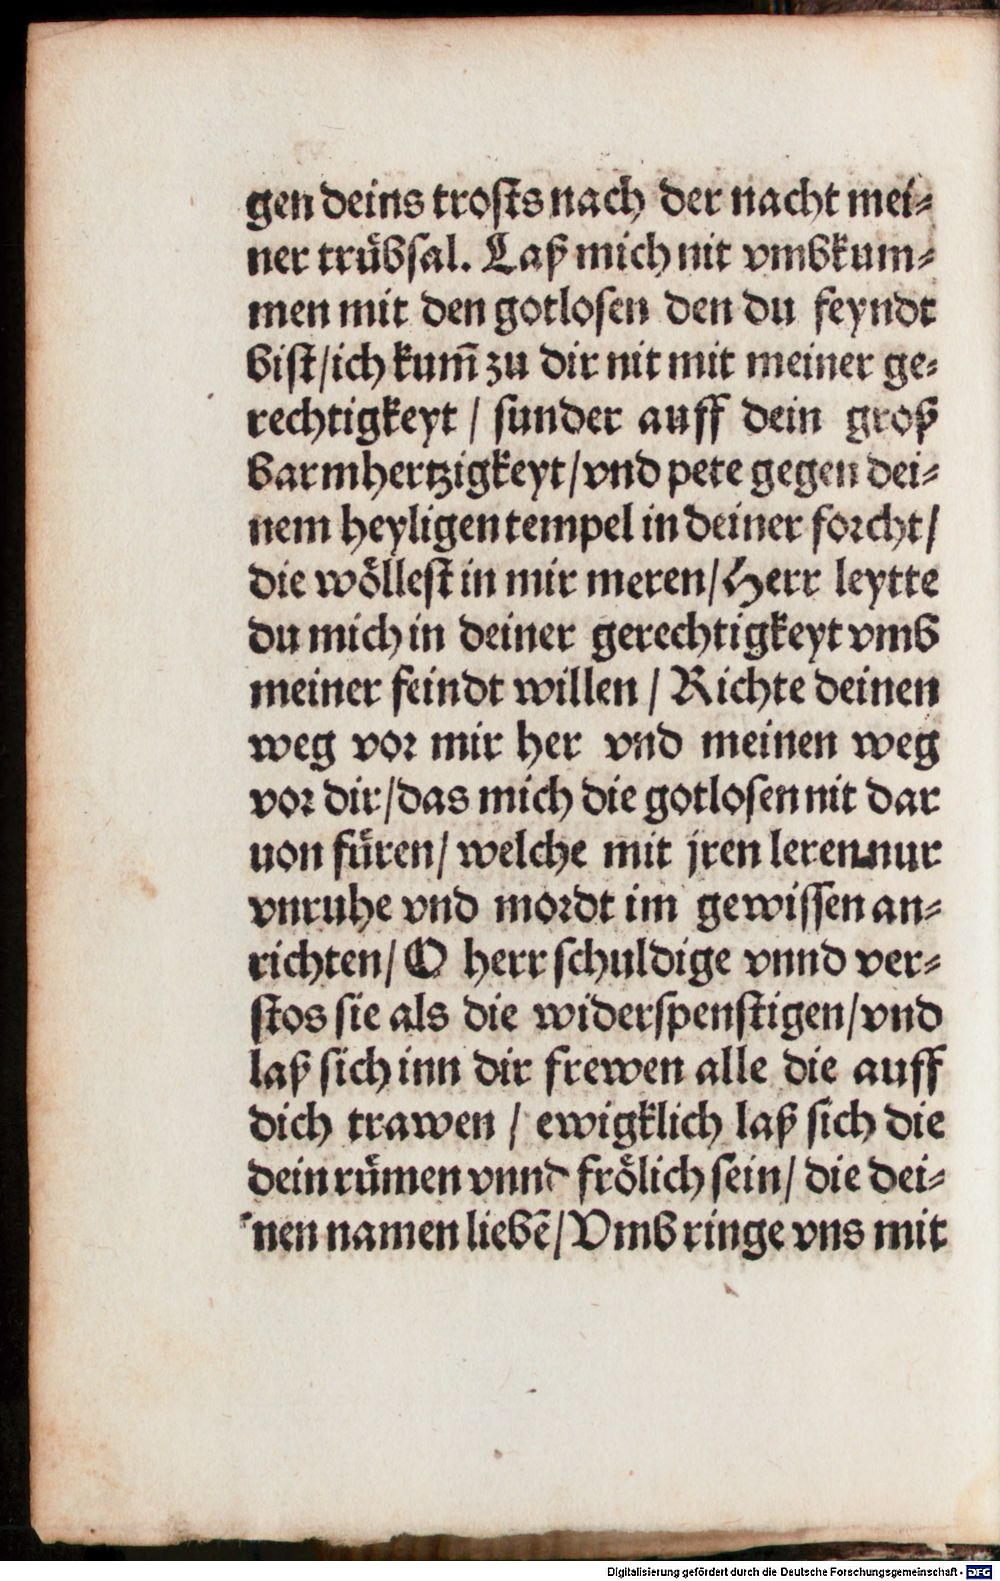 gen deins trosts nach der nacht mei⸗
ner trůbsal. Laß mich nit vmbkum⸗
men mit den gotlosen den du feyndt
bist/ich kum̄ zu dir nit mit meiner ge⸗
rechtigkeyt / sunder auff dein groß
barmhertzigkeyt/vnd pete gegen dei⸗
nem heyligen tempel in deiner forcht/
die woͤllest in mir meren/Herr leytte
du mich in deiner gerechtigkeyt vmb
meiner feindt willen / Richte deinen
weg vor mir her vnd meinen weg
vor dir/das mich die gotlosen nit dar
uon fuͤren/ welche mit jren leren nur
vnruhe vnd mordt im gewissen an⸗
richten/ O herr schuldige vnnd ver⸗
stos sie als die widerspenstigen/vnd
laß sich inn dir frewen alle die auff
dich trawen / ewigklich laß sich die
dein ruͤmen vnnd froͤlich sein/ die dei⸗
nen namen liebē/Vmb ringe vns mit
Digitalisierung gefördert durch die Deutsche Forschungsgemeinschaft - DFG